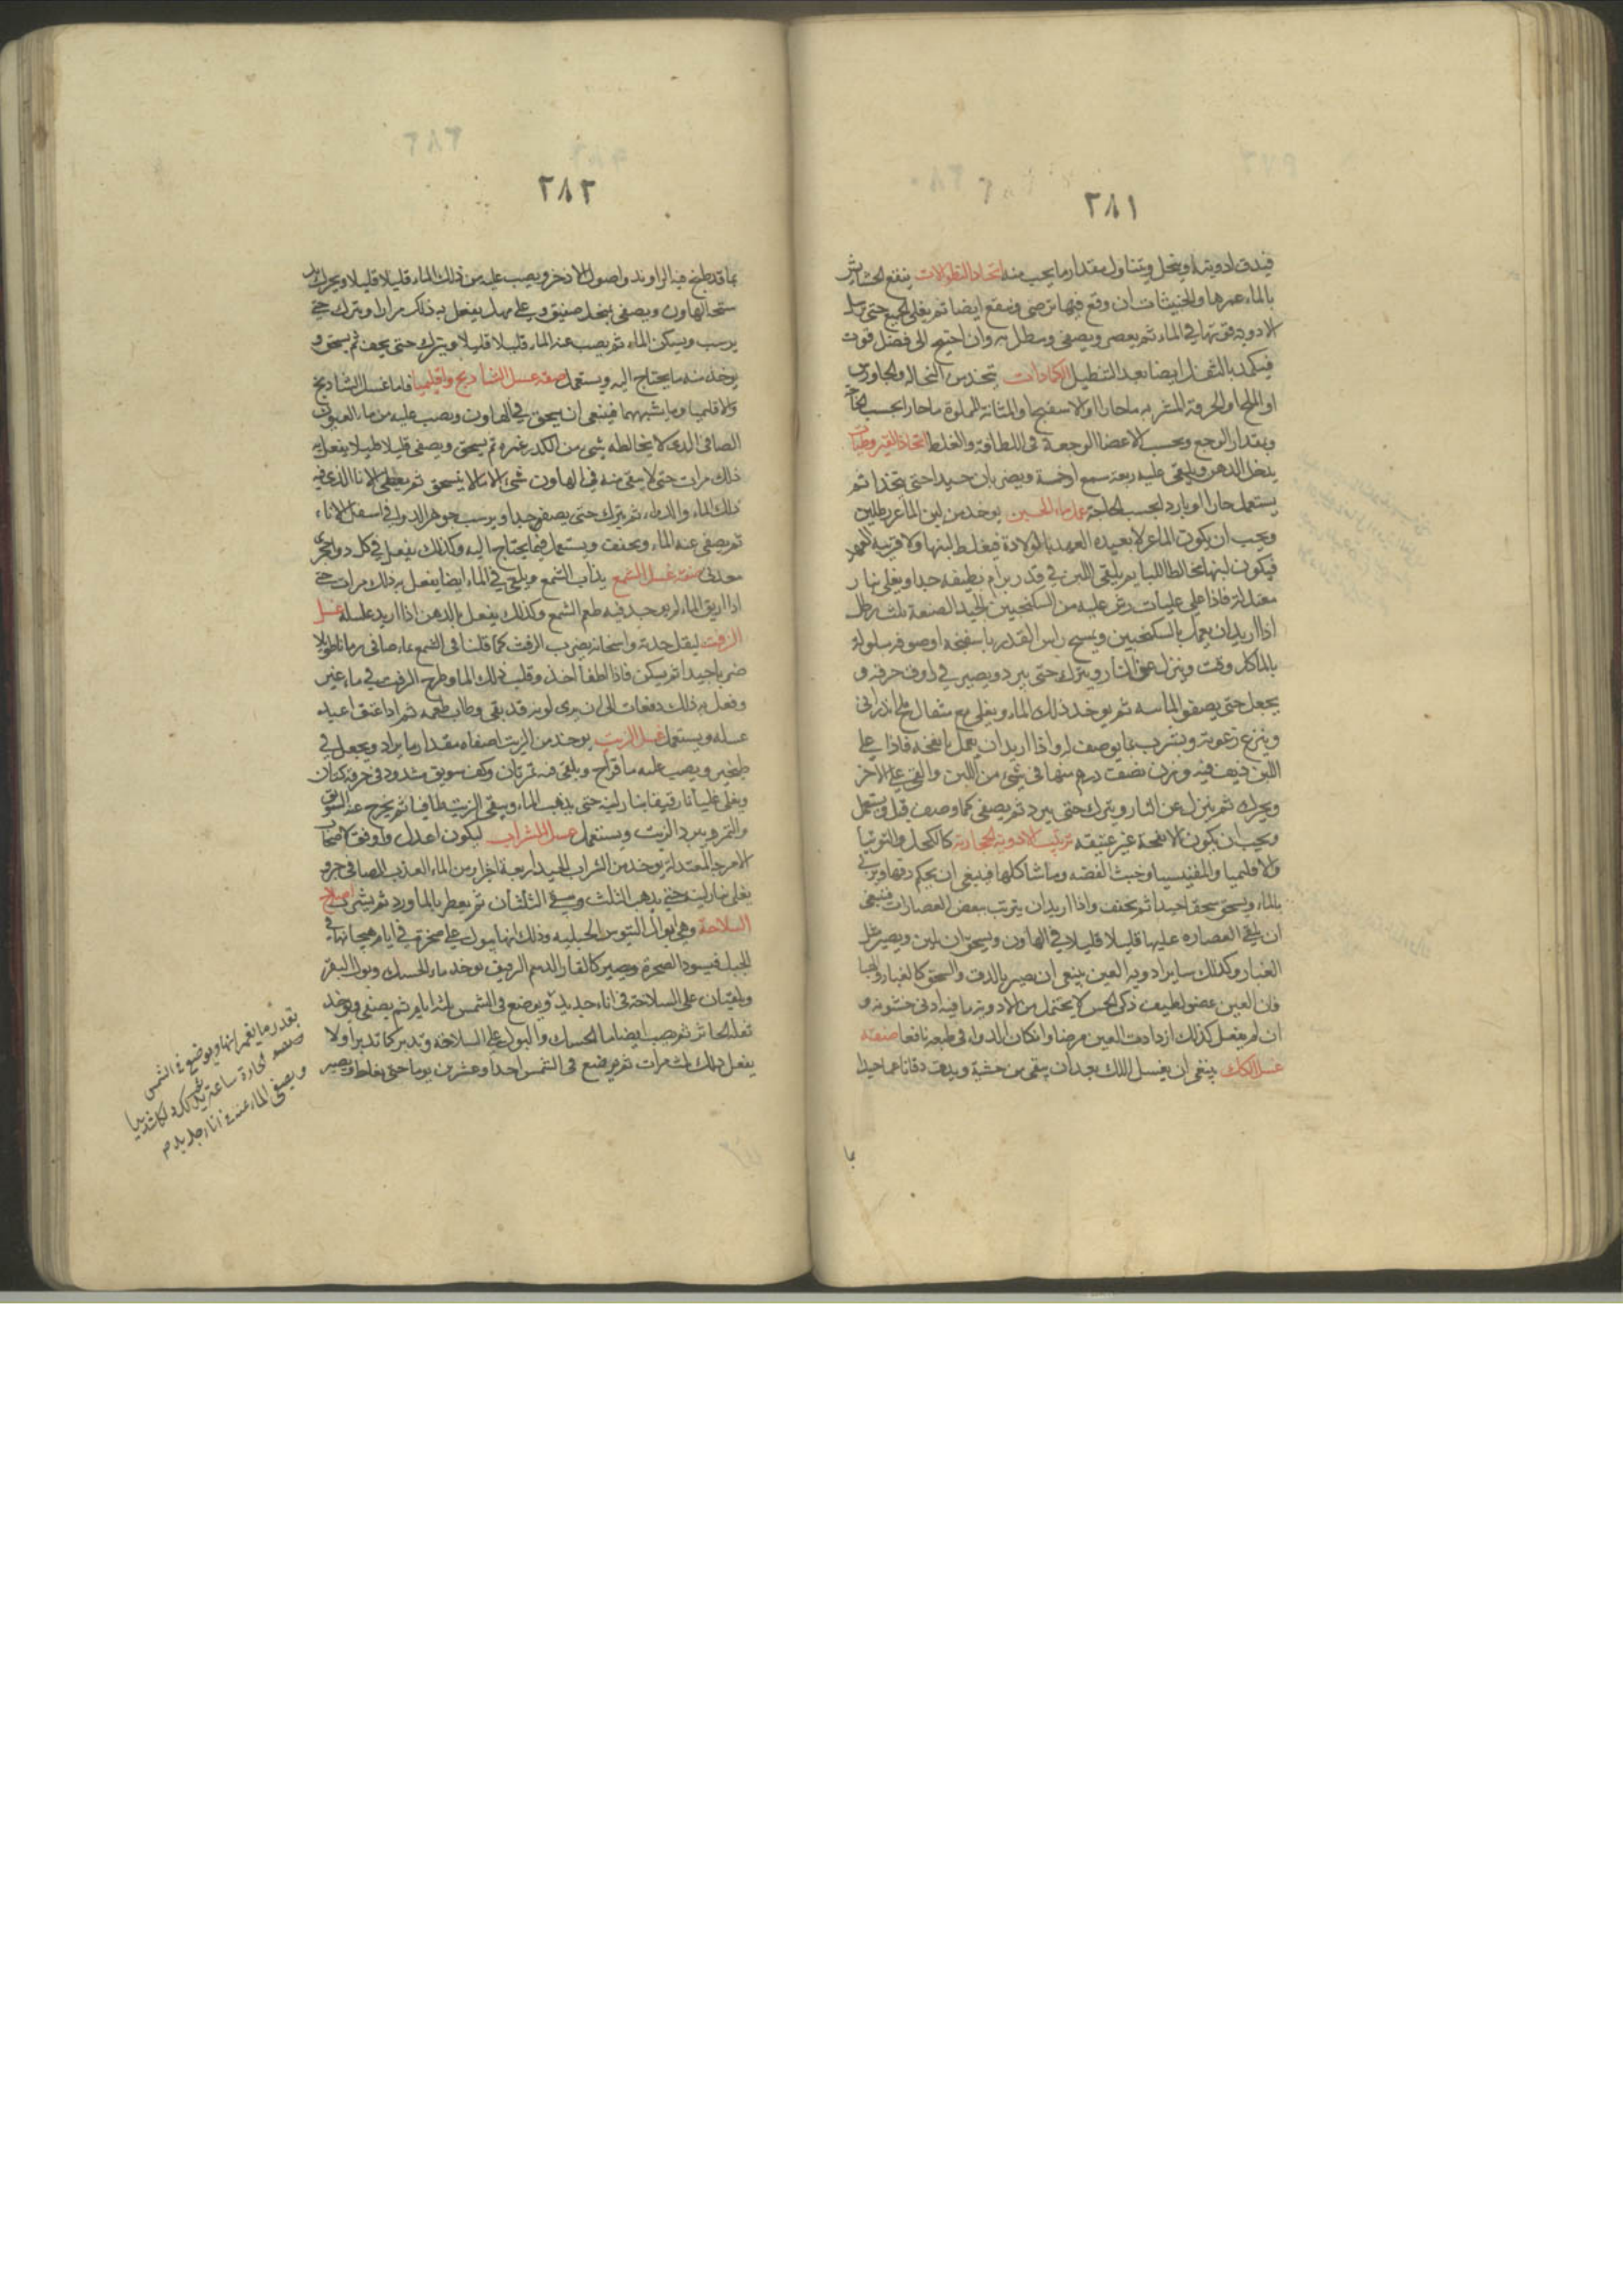 ٢٨١
فيدق ادويته وينخل ويتناول بمقدار ما يجب منه اتخاذ النطولات ينقع الحشايش
بالماء غمرها والخبيثات ان وقع فيها ترض وينقع ايضا ثم يغلى الجميع حتى
الادوية قوتها في الماء ثم يعصر ويصفى وينطل به وان احتيج الى فضل قوة
فيكمد بالثفل ايضا بعد التنطيل الكمادات يتخذ من النخالة والجاورس
او الملح او الخرقة المشربة ماء حارا او الاسفنج او المثانة المملوة ماء حارا بحسب الحاجة
وبمقدار الوجع وبحسب الاعضا الوجعة في اللطافة والغلظ اتخاذ القيروطيات
يتخذ الدهن ويلقى عليه ربعه شمع او خمسه ويضربان جيدا حتى يتحدا ثم
يستعمل حارا او باردا بحسب الحاجة عمل ماء الجبن يوخذ من لبن الماعز رطلين
ويجب ان يكون الماعز لا بعيدة العهد بالولادة فيغلظ لبنها ولا قريبة العهد
فيكون لبنها مخالطا اللبا ثم يلقى اللبن في قدر برام نظيفه جدا ويغلى بنار
معتدلة فاذا غلى غليات رش عليه من السكنجبين الجيد الصنعة ثلث رطل
اذا اريد ان يعمل بالسكنجبين ويمسح راس القدر باسفنجة او صوفة مبلولة
بالماء كل وقت وينزل عن النار ويترك حتى يبرد ويصير في اوف خرقة و
يجعل حتى يصفو الماسه ثم يوخذ ذلك الماء ويغلى مع مثقال ملح اندراني
وينزع رغوته ويشرب بما يوصف له واذا اريد ان يعمل بانفحة فاذا غلى
اللبن ذيف فيه وزن نصف درهم منها في شيء من اللبن والقى على الاخر
ويحرك ثم ينزل عن النار ويترك حتى يبرد ثم يصفى كما وصف قبل ويستعمل
ويجب ان يكون الانفحة غير عتيقه تربيب الادوية الحجارية كالكحل والتوتيا
والاقليميا والمقنيسيا وخبث الفضه وما شاكلها فينبغي ان يحكم دقها ويربى
بالماء ويسحق سحقا جيدا ثم يجفف واذا اريد ان يربب ببعض العصارات فينبغي
ان يلقى العصارة عليها قليلا قليلا في الهاون ويسحق بان لين ويصير مثل
الغبار وكذلك ساير ادوية العين ينبغي ان يصير بالدق والسحق كالغبار والهبا
فان العين عضو لطيف ذكي الحس لا يحتمل من الادوية ما فيه ادنى خشونه و
ان لم يفعل كذلك ازدادت العين مرضا وان كان الدواء في طبعه نافعا صفته
غسل اللك ينبغي ان يغسل اللك بعد ان ينقى من خشبه ويدق دقا ناعما جيدا
بما
٢٨٢
بماء قد طبخ فيه الراوند واصول الاذخر ويصب عليه من ذلك الماء قليلا قليلا ويحرك
ستح الهاون ويصفى بمنخل صفيق وعلى مهل يفعل به ذلك مرارا ويترك حتى
يرسب ويسكن الماء ثم يصب عنه الماء قليلا قليلا ويترك حتى يجف ثم يسحق و
يوخذ منه ما يحتاج اليه ويستعمل صفه غسل الشاذنج واقليميا فاما غسل الشاذنج
والاقليميا وما يشبههما فينبغي ان يسحق في الهاون ويصب عليه من ماء العيون
الصافي الذي لا يخالطه شي من الكدر غمره ثم يسحق ويصفى قليلا قليلا يفعل به
ذلك مرات حتى لا يبقى منه في الهاون شي الا ما لا ينسحق ثم يغطى الانا الذي فيه
ذلك الماء والدواء ثم يترك حتى يصفو جيدا ويرسب جوهر الدوا في اسفل الاناء
ثم يصفى عنه الماء ويجفف ويستعمل فيما يحتاج اليه وكذلك يفعل في كل دوا حجري
معدني صفته غسل الشمع يذاب الشمع ويلقى في الماء ايضا يفعل به ذلك مرات حتى
اذا اريق الماء لم يوجد فيه طعم الشمع وكذلك يفعل بالدهن اذا اريد غسله غسل
الزفت ليقل حدته واسخانه يضرب الزفت كما قلنا في الشمع بماء صافي زمانا طويلا
ضربا جيدا ثم يسكن فاذا طفا اخذ وقلب ذلك الماء وطرح الزفت في ماء غير
وفعل به ذلك دفعات الى ان يرى لونه قد نقى وطاب طعمه ثم اذا عتق اعيد
غسله ويستعمل غسل الزيت يوخذ من الزيت اصفاه مقدار ما يراد ويجعل في
طنجير ويصب عليه ماء قراح ويلقى فيه تمرتان وكف سويق مشدود في خرقة كتان
ويغلى غليانا رقيقا بنار لينه حتى يذهب الماء ويبقى الزيت طافيا ثم يخرج عنه السويق
والتمر ويبرد الزيت ويستعمل غسل الشراب ليكون اعدل واوفق لاصحاب
الامزجة المعتدلة يوخذ من الشراب الجيد اربعة اجزا ومن الماء العذب الصافي جزو
يغلى بنار لينه حتى يذهب الثلث ويبقى الثلثان ثم يعطر بالماورد ثم يشرب اصلاح
السلاحة وهي ابوال التيوس الجبليه وذلك انها تبول على صخرة في ايام هيجانها في
الجبل فيسود الصخرة ويصير كالقار الدسم الرقيق يوخذ ماء الحسك وبول البقر
ويلقيان على السلاحة في اناء جديد ويوضع في الشمس ثلثه ايام ثم يصفى ويوخذ
ثفله الخاثر ثم يصب ايضا ماء الحسك والبول على السلاحة وتدبر كما تدبر اولا
يفعل ذلك ثلث مرات ثم يوضع في الشمس احدا وعشرين يوما حتى يغلظ ويصير
بقدر ما يغمرانها ويوضع في الشمس
الحارة ساعة
ويصفى الماء عنه في اناء جديد